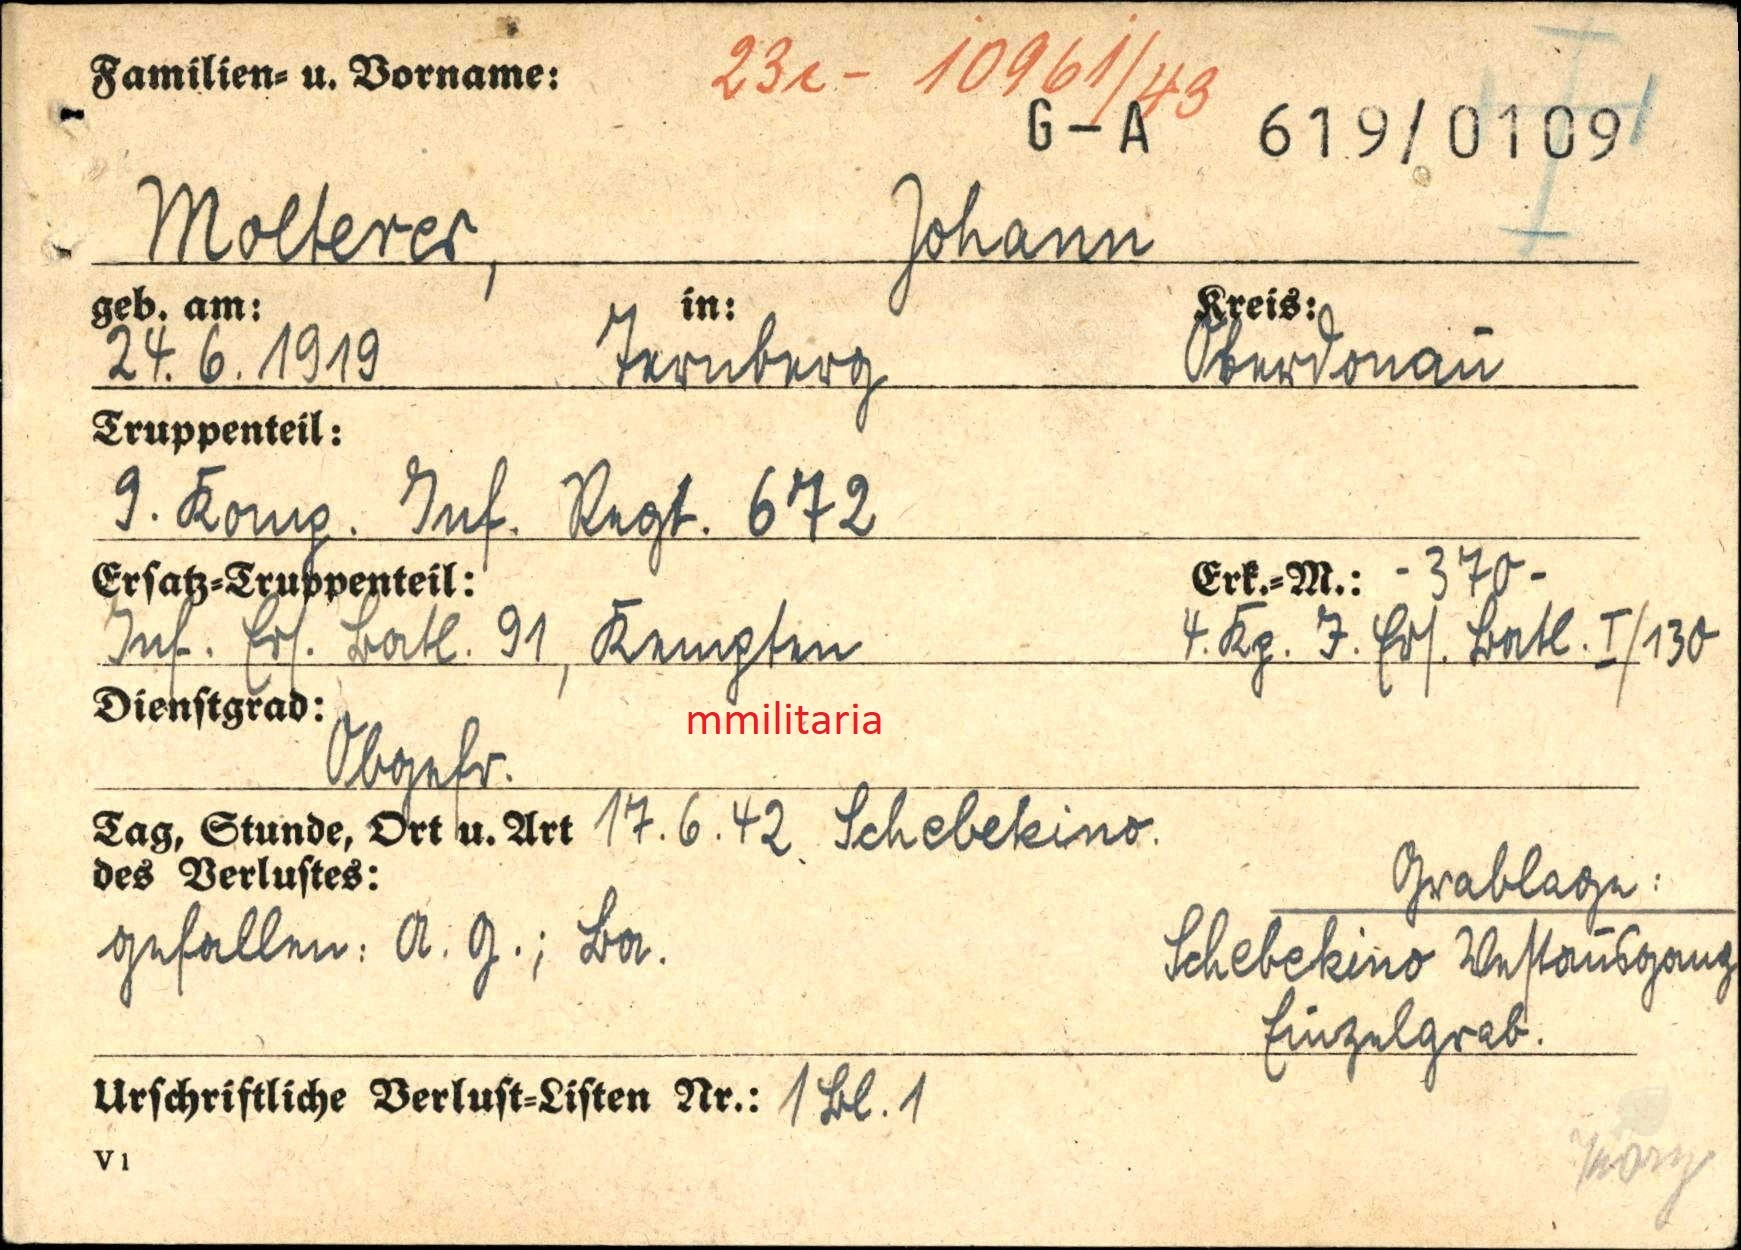 Familien- u. Vorname: 23c - 10961/43
G-A 619/0109
I
Molterer, Johann
geb. am: in: Kreis:
24.6.1919 Ternberg Oberdonau
Truppenteil:
9. Komp. Inf. Regt. 672
Ersatz-Truppenteil: Erk.-M.: -370-
Inf. Ers. Batl. 91, Kempten 4. Kp. J. Ers. Batl. I/130
Dienstgrad:
mmilitaria
Obgefr.
Tag, Stunde, Ort u. Art 17.6.42 Schebekino.
des Verlustes:
Grablage:
gefallen: A. G.; Ba. Schebekino Westausgang
Einzelgrab.
Urschriftliche Verlust-Listen Nr.: 1 Bl. 1
V 1